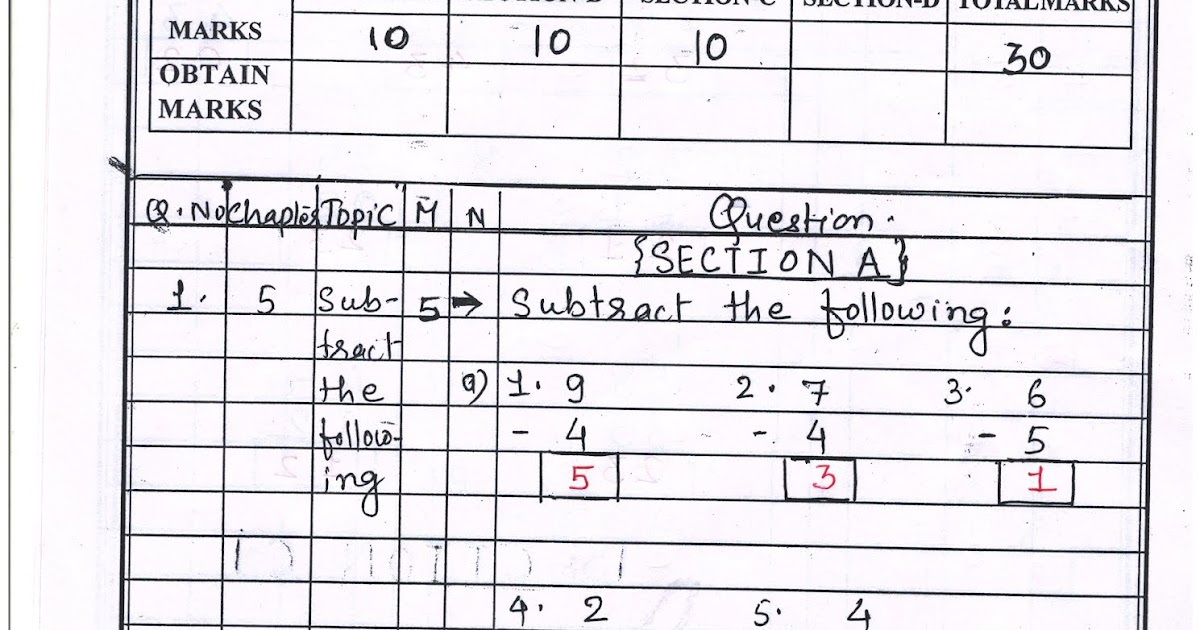 SECTION-B SECTION-C SECTION-D TOTAL MARKS
MARKS 10 10 10 30
OBTAIN
MARKS
Q.No Chapter Topic M N Question.
{SECTION A}
1. 5 Sub- 5 → Subtract the following:
tract
the a) 1. 9 2. 7 3. 6
follow- - 4 - 4 - 5
ing 5 3 1
4. 2 5. 4